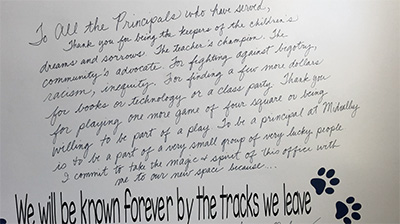 To All the Principals who have served,
Thank you for being the keepers of the children's
dreams and sorrows. The teacher's champion. The
community's advocate. For fighting against bigotry,
racism, inequity. For finding a few more dollars
for books or technology or a class party. Thank you
for playing one more game of four square or being
willing to be part of a play. To be a principal at
is to be a part of a very small group of very lucky people
I commit to take the magic & spirit of this office with
me to our new space because....
We will be known forever by the tracks we leave